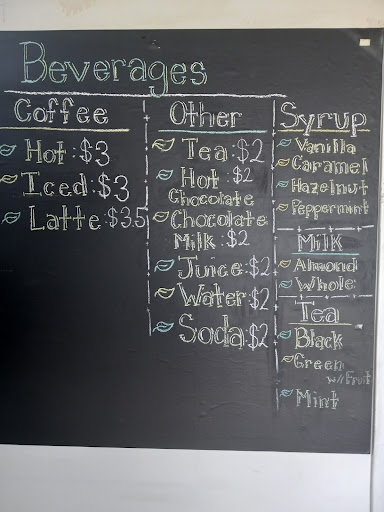 Beverages
Coffee
Hot: $3
Iced: $3
Latte: $3.5
Other
Tea: $2
Hot: $2
Chocolate
Chocolate
Milk: $2
Juice: $2
Water: $2
Soda: $2
Syrup
Vanilla
Caramel
Hazelnut
Peppermint
Milk
Almond
Whole
Tea
Black
Green
w/ Fruit
Mint